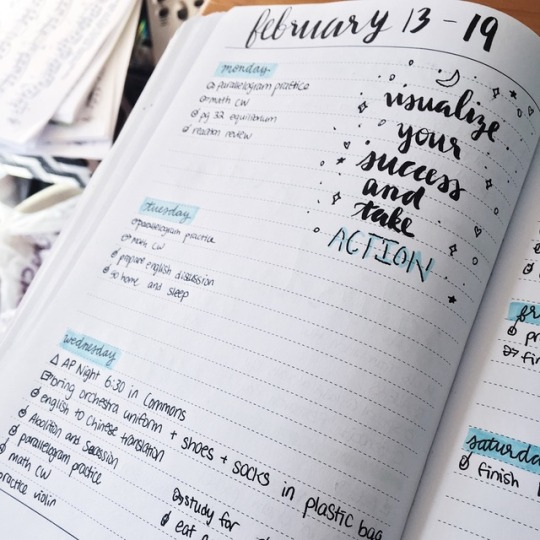 february 13 - 19
monday
parallelogram practice
math CW
pg 32 equilibrium
reaction review
visualize
your
success
and
take
ACTION
tuesday
parallelogram practice
math CW
prepare english discussion
go home and sleep
wednesday
AP Night 6:30 in Commons
bring orchestra uniform + shoes + socks in plastic bag
english to Chinese translation
Abolition and Secession
parallelogram practice
math CW
practice violin
study for
eat
saturda
finish